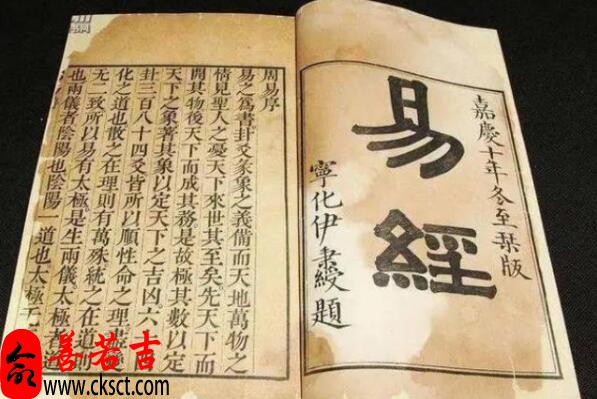 嘉慶十年冬至栞版
易經
寧化伊秉綬題
周易序
易之爲書卦爻彖象之義備而天地萬物之
情見聖人之憂天下來世其至矣先天下而
開其物後天下而成其務是故極其數以定
天下之象著其象以定天下之吉凶六
卦三百八十四爻皆所以順性命之理盡
化之道也散之在理則有萬殊統之在道則
無二致所以易有太極是生兩儀太極者道
也兩儀者陰陽也陰陽一道也太極
善若吉
www.cksct.com